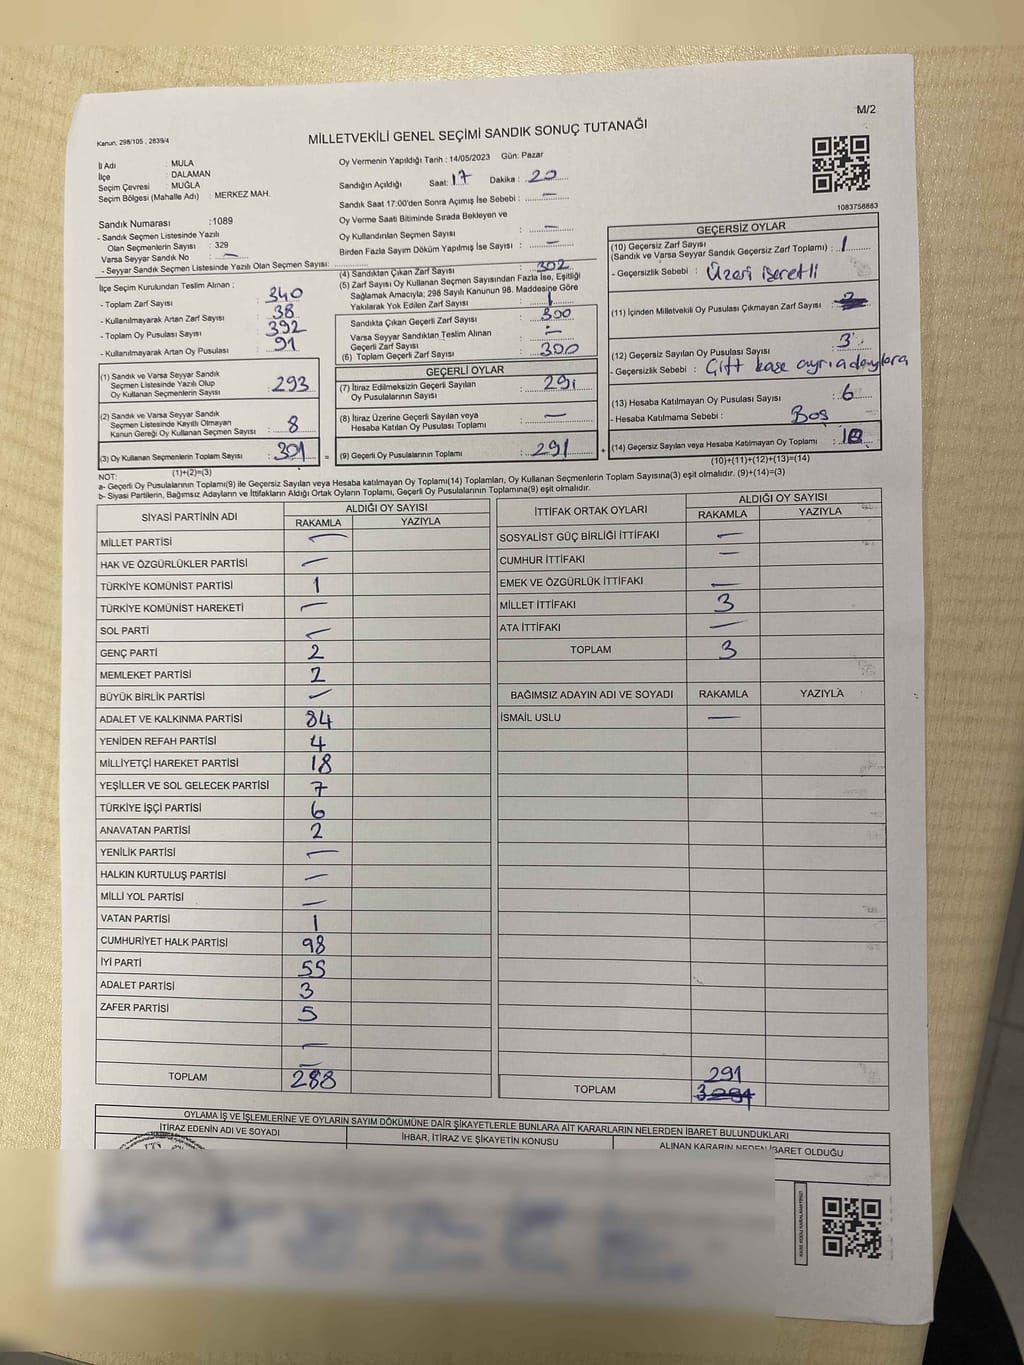 M/2
Kanun: 298/105 , 2839/4
MİLLETVEKİLİ GENEL SEÇİMİ SANDIK SONUÇ TUTANAĞI
İl Adı : MULA
İlçe : DALAMAN
Seçim Çevresi : MUĞLA
Seçim Bölgesi (Mahalle Adı) : MERKEZ MAH.
Sandık Numarası :1089
- Sandık Seçmen Listesinde Yazılı
Olan Seçmenlerin Sayısı : 329
Varsa Seyyar Sandık No : —
- Seyyar Sandık Seçmen Listesinde Yazılı Olan Seçmen Sayısı:
Oy Vermenin Yapıldığı Tarih : 14/05/2023 Gün: Pazar
Sandığın Açıldığı Saat: 17 Dakika : 20
Sandık Saat 17:00'den Sonra Açımış İse Sebebi : —
Oy Verme Saati Bitiminde Sırada Bekleyen ve
Oy Kullandırılan Seçmen Sayısı : —
Birden Fazla Sayım Döküm Yapılmış İse Sayısı : —
1083756863
İlçe Seçim Kurulundan Teslim Alınan :
- Toplam Zarf Sayısı : 340
- Kullanılmayarak Artan Zarf Sayısı : 38
- Toplam Oy Pusulası Sayısı : 392
- Kullanılmayarak Artan Oy Pusulası : 91
(1) Sandık ve Varsa Seyyar Sandık
Seçmen Listesinde Yazılı Olup
Oy Kullanan Seçmenlerin Sayısı : 293
(2) Sandık ve Varsa Seyyar Sandık
Seçmen Listesinde Kayıtlı Olmayan
Kanun Gereği Oy Kullanan Seçmen Sayısı : 8
(3) Oy Kullanan Seçmenlerin Toplam Sayısı : 301
(1)+(2)=(3)
(4) Sandıktan Çıkan Zarf Sayısı : 302
(5) Zarf Sayısı Oy Kullanan Seçmen Sayısından Fazla İse, Eşitliği
Sağlamak Amacıyla; 298 Sayılı Kanunun 98. Maddesine Göre
Yakılarak Yok Edilen Zarf Sayısı : 1
Sandıkta Çıkan Geçerli Zarf Sayısı : 300
Varsa Seyyar Sandıktan Teslim Alınan
Geçerli Zarf Sayısı : —
(6) Toplam Geçerli Zarf Sayısı : 300
GEÇERLİ OYLAR
(7) İtiraz Edilmeksizin Geçerli Sayılan
Oy Pusulalarının Sayısı : 291
(8) İtiraz Üzerine Geçerli Sayılan veya
Hesaba Katılan Oy Pusulası Toplamı : —
= (9) Geçerli Oy Pusulalarının Toplamı : 291 +
GEÇERSİZ OYLAR
(10) Geçersiz Zarf Sayısı
(Sandık ve Varsa Seyyar Sandık Geçersiz Zarf Toplamı) : 1
- Geçersizlik Sebebi : Üzeri işaretli
(11) İçinden Milletvekili Oy Pusulası Çıkmayan Zarf Sayısı :
(12) Geçersiz Sayılan Oy Pusulası Sayısı : 3
- Geçersizlik Sebebi : Çift kaşe ayrı adaylara
(13) Hesaba Katılmayan Oy Pusulası Sayısı : 6
- Hesaba Katılmama Sebebi : Boş
(14) Geçersiz Sayılan veya Hesaba Katılmayan Oy Toplamı :
(10)+(11)+(12)+(13)=(14)
NOT:
a- Geçerli Oy Pusulalarının Toplamı(9) ile Geçersiz Sayılan veya Hesaba Katılmayan Oy Toplamı(14) Toplamları, Oy Kullanan Seçmenlerin Toplam Sayısına(3) eşit olmalıdır. (9)+(14)=(3)
b- Siyasi Partilerin, Bağımsız Adayların ve İttifakların Aldığı Ortak Oyların Toplamı, Geçerli Oy Pusulalarının Toplamına(9) eşit olmalıdır.
SİYASİ PARTİNİN ADI ALDIĞI OY SAYISI
RAKAMLA YAZIYLA
MİLLET PARTİSİ —
HAK VE ÖZGÜRLÜKLER PARTİSİ —
TÜRKİYE KOMÜNİST PARTİSİ 1
TÜRKİYE KOMÜNİST HAREKETİ —
SOL PARTİ —
GENÇ PARTİ 2
MEMLEKET PARTİSİ 2
BÜYÜK BİRLİK PARTİSİ —
ADALET VE KALKINMA PARTİSİ 84
YENİDEN REFAH PARTİSİ 4
MİLLİYETÇİ HAREKET PARTİSİ 18
YEŞİLLER VE SOL GELECEK PARTİSİ 7
TÜRKİYE İŞÇİ PARTİSİ 6
ANAVATAN PARTİSİ 2
YENİLİK PARTİSİ —
HALKIN KURTULUŞ PARTİSİ —
MİLLİ YOL PARTİSİ —
VATAN PARTİSİ 1
CUMHURİYET HALK PARTİSİ 98
İYİ PARTİ 55
ADALET PARTİSİ 3
ZAFER PARTİSİ 5
—
—
TOPLAM 288
İTTİFAK ORTAK OYLARI ALDIĞI OY SAYISI
RAKAMLA YAZIYLA
SOSYALİST GÜÇ BİRLİĞİ İTTİFAKI —
CUMHUR İTTİFAKI —
EMEK VE ÖZGÜRLÜK İTTİFAKI —
MİLLET İTTİFAKI 3
ATA İTTİFAKI —
TOPLAM 3
BAĞIMSIZ ADAYIN ADI VE SOYADI RAKAMLA YAZIYLA
İSMAİL USLU —
291
TOPLAM
OYLAMA İŞ VE İŞLEMLERİNE VE OYLARIN SAYIM DÖKÜMÜNE DAİR ŞİKAYETLERLE BUNLARA AİT KARARLARIN NELERDEN İBARET BULUNDUKLARI
İTİRAZ EDENİN ADI VE SOYADI İHBAR, İTİRAZ VE ŞİKAYETİN KONUSU ALINAN KARARIN NEDEN İBARET OLDUĞU